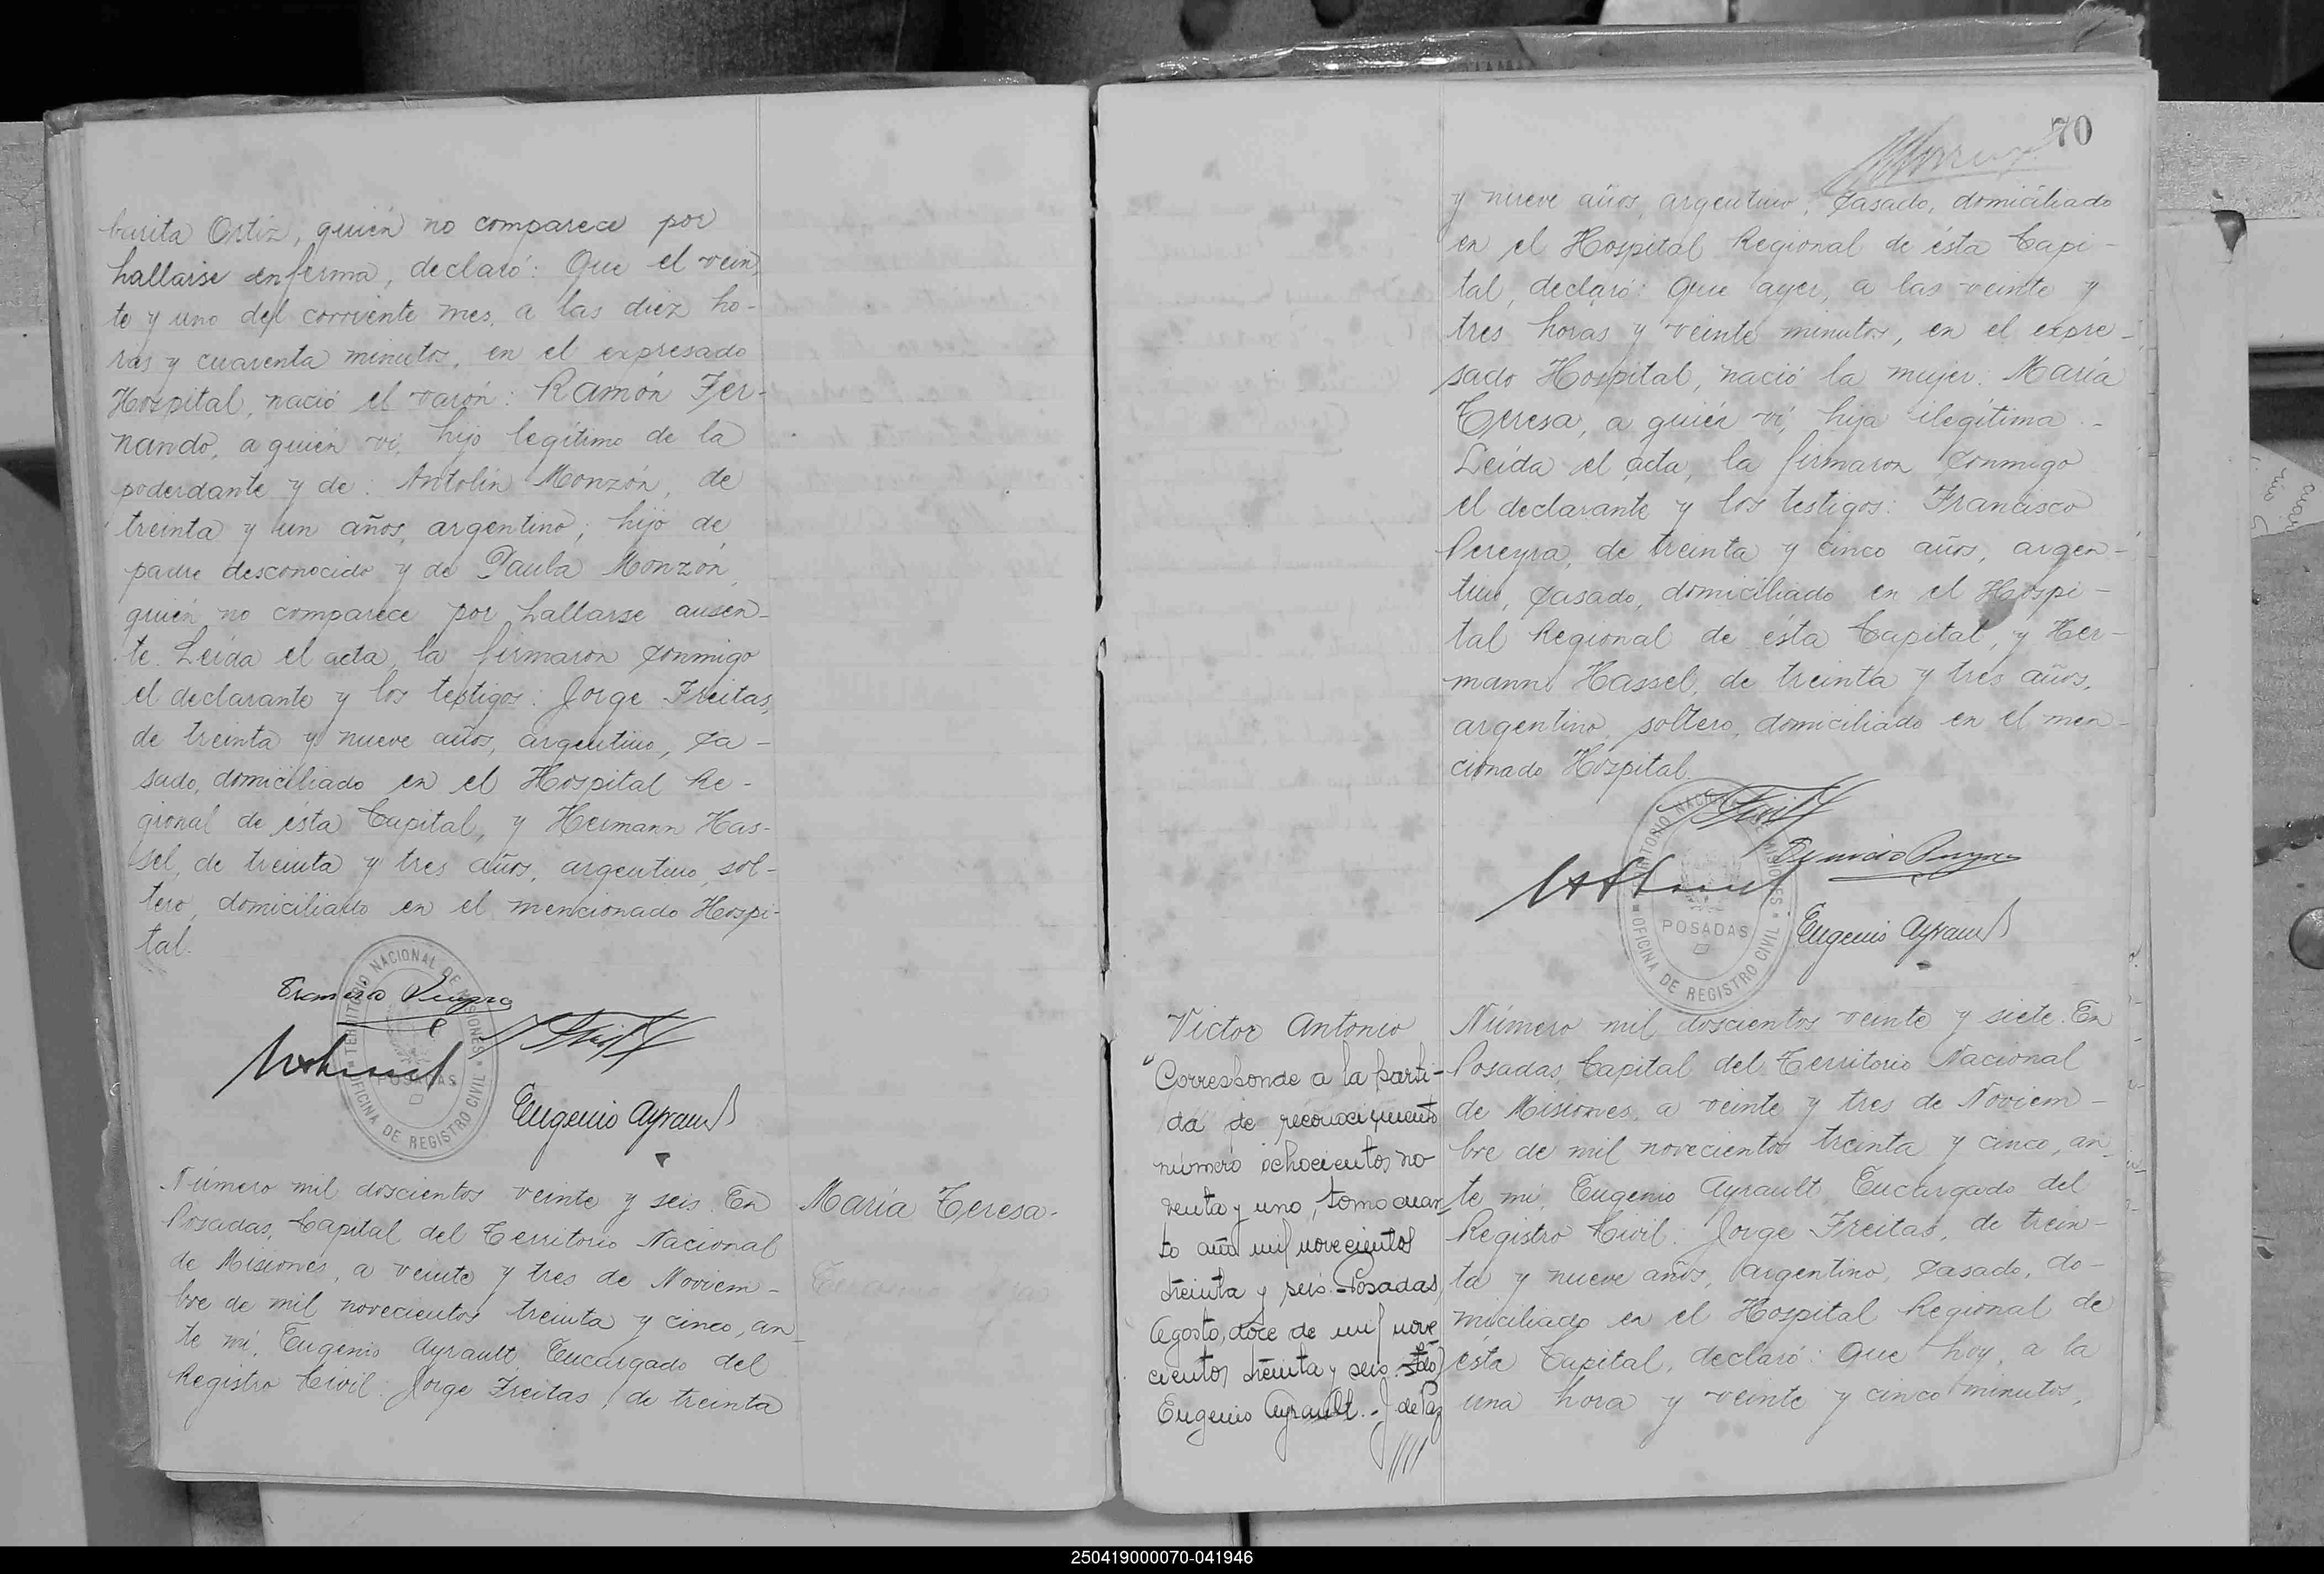 barita Ortiz, quién no comparece por
hallarse enferma, declaró: Que el vein
te y uno del corriente mes, a las diez ho-
ras y cuarenta minutos, en el expresado
Hospital, nació el varón: Ramón Fer-
nando, a quién vi, hijo legítimo de la
poderdante y de: Antolín Monzón, de
treinta y un años, argentino; hijo de
padre desconocido y de Paula Monzón,
quién no comparece por hallarse ausen-
te. Leída el acta, la firmaron conmigo
el declarante y los testigos: Jorge Freitas,
de treinta y nueve años, argentino, ca-
sado, domiciliado en el Hospital Re-
gional de ésta Capital, y Hermann Has-
sel, de treinta y tres años, argentino, sol-
tero, domiciliado en el mencionado Hospi-
tal.
TERRITORIO NACIONAL DE MISIONES
POSADAS
OFICINA DE REGISTRO CIVIL
Eugenio Ayrault
Número mil doscientos veinte y seis. En
Posadas, Capital del Territorio Nacional
de Misiones, a veinte y tres de Noviem-
bre de mil novecientos treinta y cinco, an-
te mí, Eugenio Ayrault, Encargado del
Registro Civil: Jorge Freitas, de treinta
María Teresa.
70
y nueve años, argentino, casado, domiciliado
en el Hospital Regional de ésta Capi-
tal, declaró: Que ayer, a las veinte y
tres horas y veinte minutos, en el expre-
sado Hospital, nació la mujer: María
Teresa, a quién vi, hija ilegítima.-
Leída el acta, la firmaron conmigo
el declarante y los testigos: Francisco
Pereyra, de treinta y cinco años, argen-
tino, casado, domiciliado en el Hospi-
tal Regional de ésta Capital, y Her-
mann Hassel, de treinta y tres años,
argentino, soltero, domiciliado en el men-
cionado Hospital.
TERRITORIO NACIONAL DE MISIONES
POSADAS
OFICINA DE REGISTRO CIVIL
Francisco Pereyra
Eugenio Ayrault
Victor Antonio
"Corresponde a la parti-
da de reconocimiento
número ochocientos no
venta y uno, tomo cuar
to año mil novecientos
treinta y seis.-Posadas,
Agosto, doce de mil nove
cientos treinta y seis. Fdo)
Eugenio Ayrault.- J de Paz
Número mil doscientos veinte y siete. En
Posadas, Capital del Territorio Nacional
de Misiones, a veinte y tres de Noviem-
bre de mil novecientos treinta y cinco, an-
te mí, Eugenio Ayrault, Encargado del
Registro Civil: Jorge Freitas, de trein-
ta y nueve años, argentino, casado, do-
miciliado en el Hospital Regional de
ésta Capital, declaró: Que hoy a la
una hora y veinte y cinco minutos,
250419000070-041946